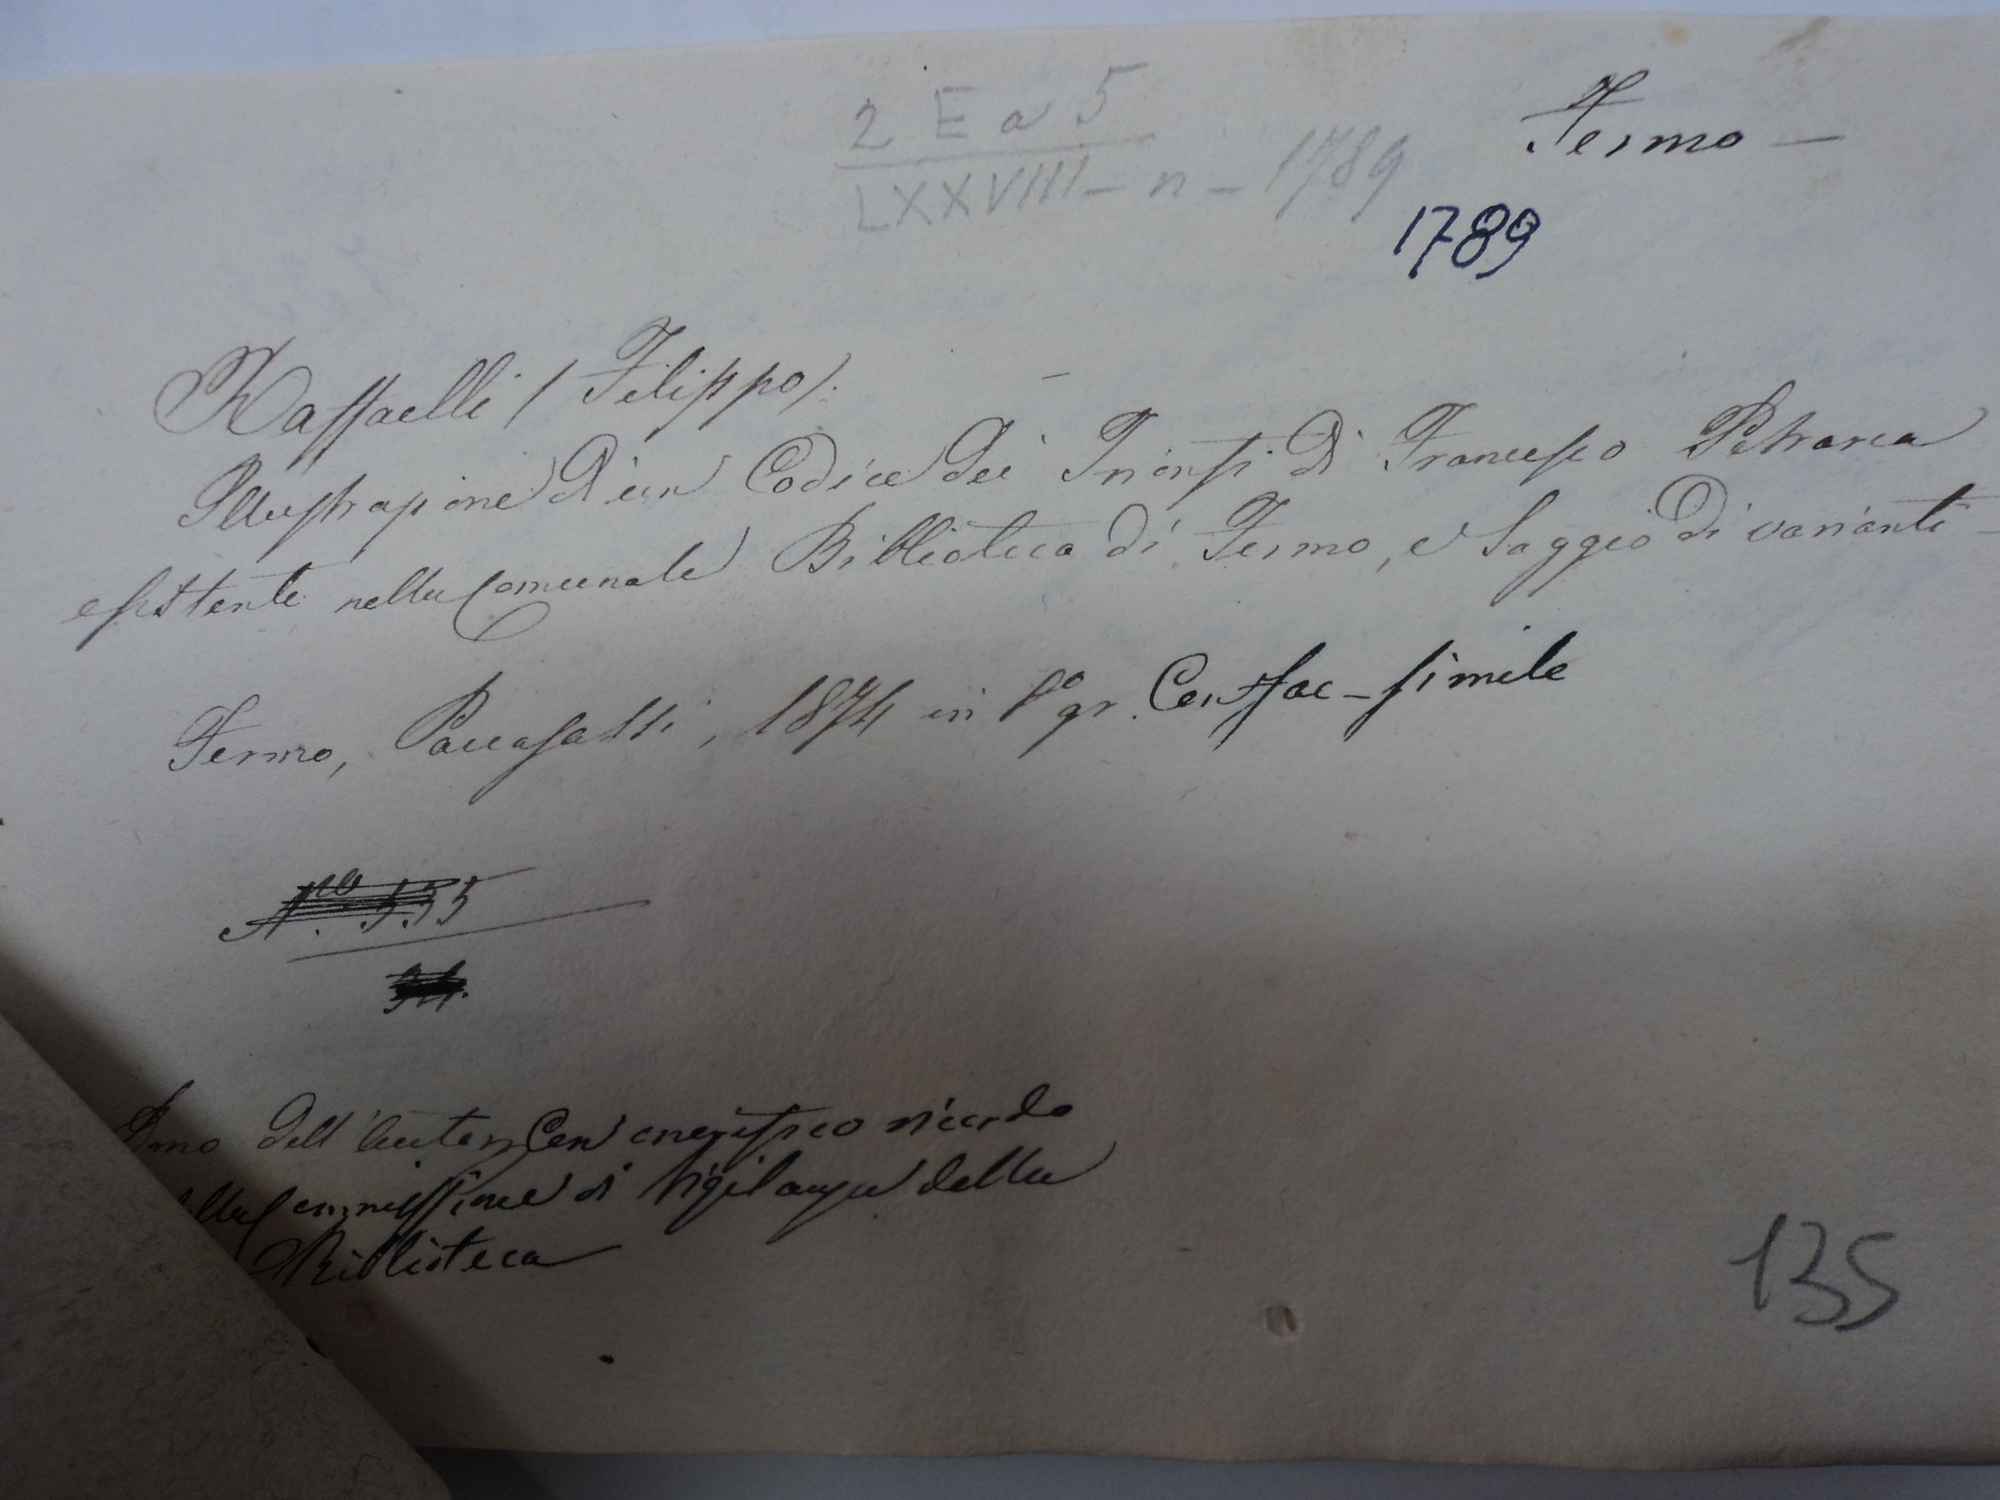 2 E a 5
LXXVIII - n - 1789
Fermo -
1789
Raffaelli (Filippo).
Illustrazione di un Codice dei Trionfi di Francesco Petrarca
esistente nella Comunale Biblioteca di Fermo, e Saggio di varianti -
Fermo, Paccasassi, 1874 in f.º gr. Con fac-simile
N.ro 555
Dono dell'autore con onorifico ricordo
alla Commissione di Vigilanza della
Biblioteca
135